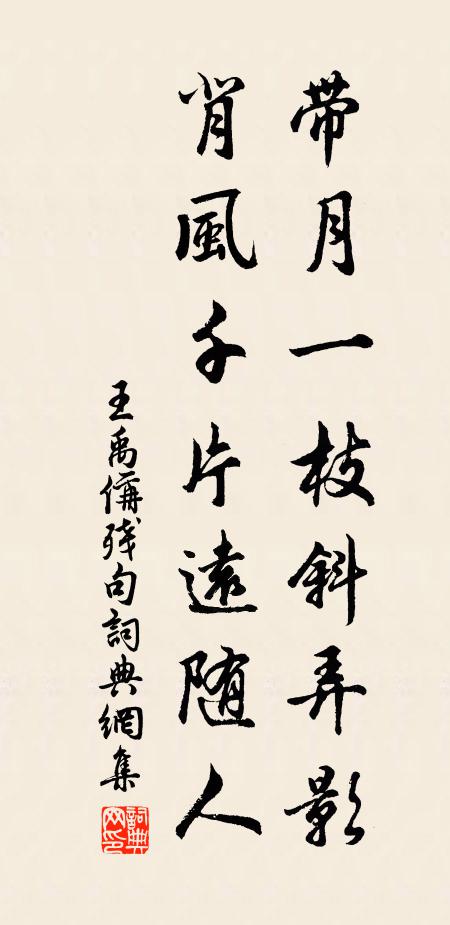 帶月一枝斜弄影
背風千片遠随人
王禹偁残句詞典網集
詞典网印